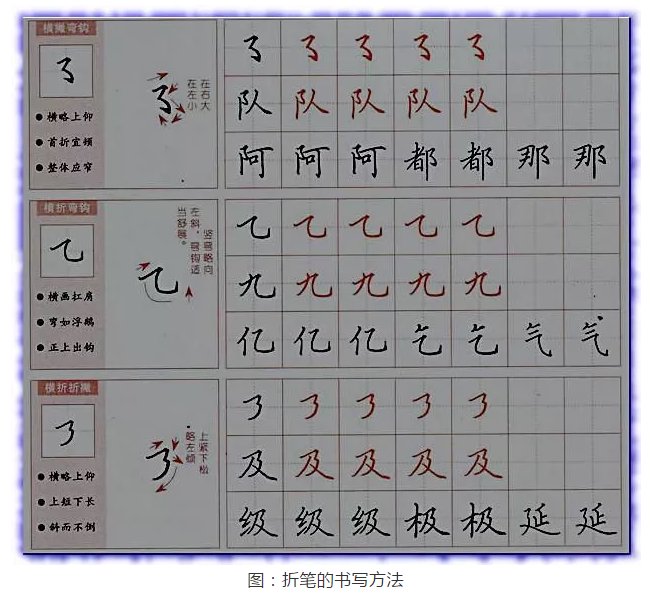 横撇弯钩
横略上仰
首折宜顿
整体应窄
在右大
在左小
队 队 队 队 队
阿 阿 阿 都 都 那 那
横折弯钩
横画扛肩
弯如浮鹅
正上出钩
竖弯略向
左斜,弯钩适
当舒展。
乙
乙
乙 乙 乙 乙 乙
九 九 九 九 九
亿 亿 亿 乞 乞 气 气
横折折撇
横略上仰
上短下长
斜而不倒
上紧下松
略左倾
及 及 及 及 及
级 级 级 极 极 延 延
图：折笔的书写方法